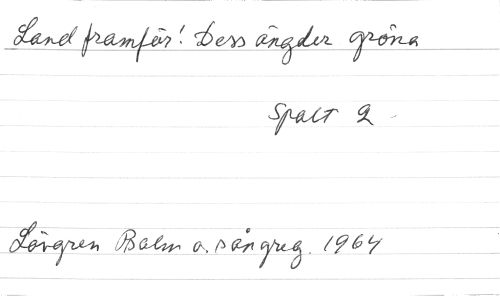 Land framför! Dess ängder gröna
Spalt 2
Lövgren Psalm o. sångreg. 1964